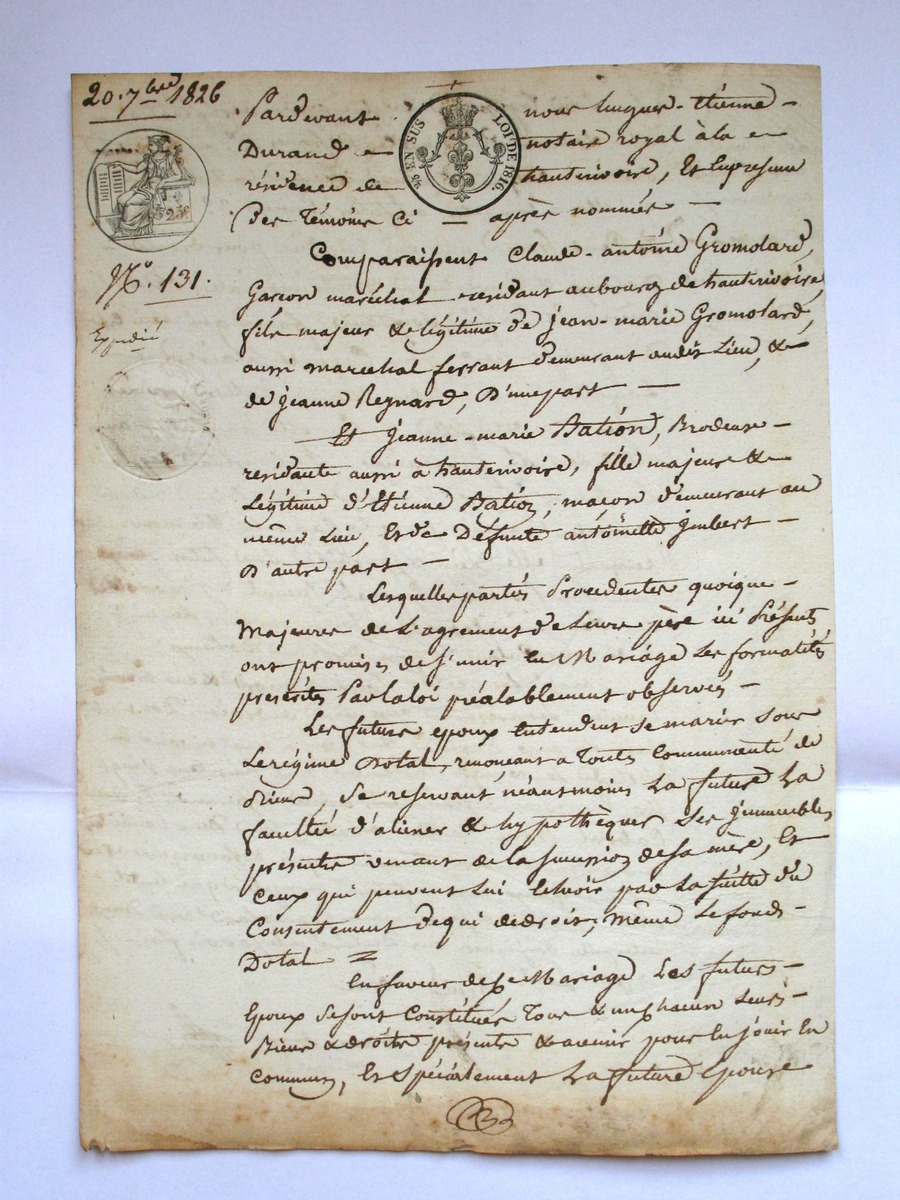 20. 7bre 1826
Pardevant nous hugues-Etienne
Durand notaire royal à la
résidence de hauterivoire, Et En presence
Des Témoins Ci après nommés
EN SUS LOI DE 1816
25c
No. 131.
Expédié
Comparaissent Claude-antoine Gromolard,
Garcon maréchal residant au bourg de hauterivoire,
fils majeur & légitime de jean-marie Gromolard,
aussi marechal ferrant demeurant audit Lieu, &
de jeanne Reynard, D'une part
Et Jeanne-marie Bation, Brodeuse
residante aussi à hauterivoire, fille majeure &
Légitime d'Etienne Bation, maçon demeurant au
même Lieu, Et de Défunte antoinette jmbert
D'autre part
Lesquelles parties Procedentes quoique
Majeures de L'agrement de Leurs père ici Présents
ont promises de s'unir En Mariage Les formalités
prescrites Par la loi préalablement observées
Les futurs epoux Entendent se marier sous
Le régime Dotal, renonçant a Toute Communauté de
Biens, Se reservant néantmoins La future La
faculté d'aliéner & hypothèquer Les jmmeubles
présents venant de la succession de sa mère, Et
Ceux qui peuvent Lui Echoir par La suitte du
Consentement de qui de droit, même Le fonds
Dotal
En faveur de Ce Mariage Les futurs
Epoux se sont Constitués Tous & un chacun Leurs
Biens & droits présents & avenir pour En jouir En
commun, Et spécialement La future Epouse